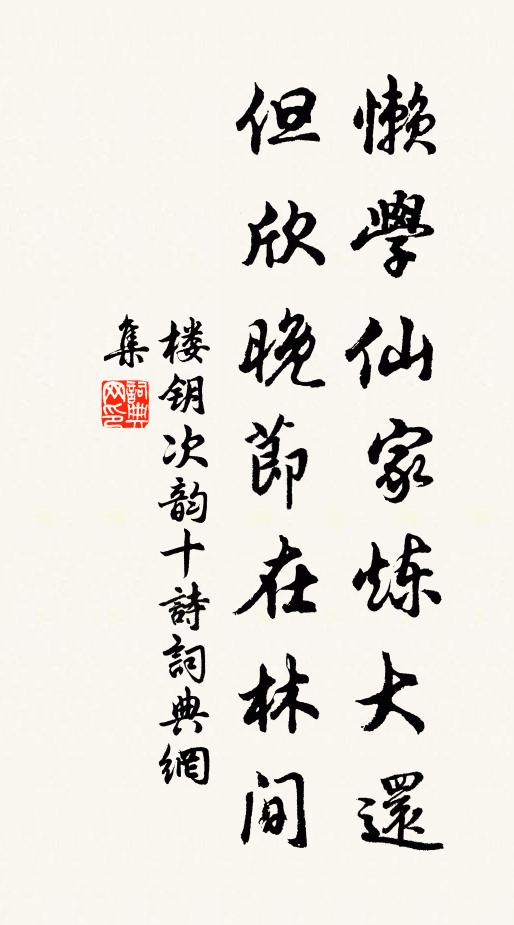 懒學仙家炼大還
但欣晚節在林間
楼钥次韵十詩詞典網
集
詞典網印